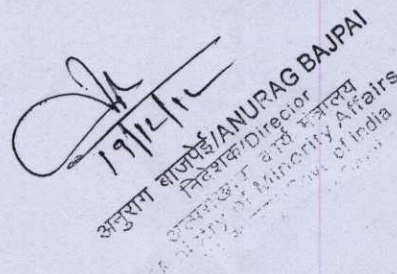 19/12/12
अनुराग बाजपेई/ANURAG BAJPAI
निदेशक/Director
मंत्रालय
Ministry of Minority Affairs
Govt. of India